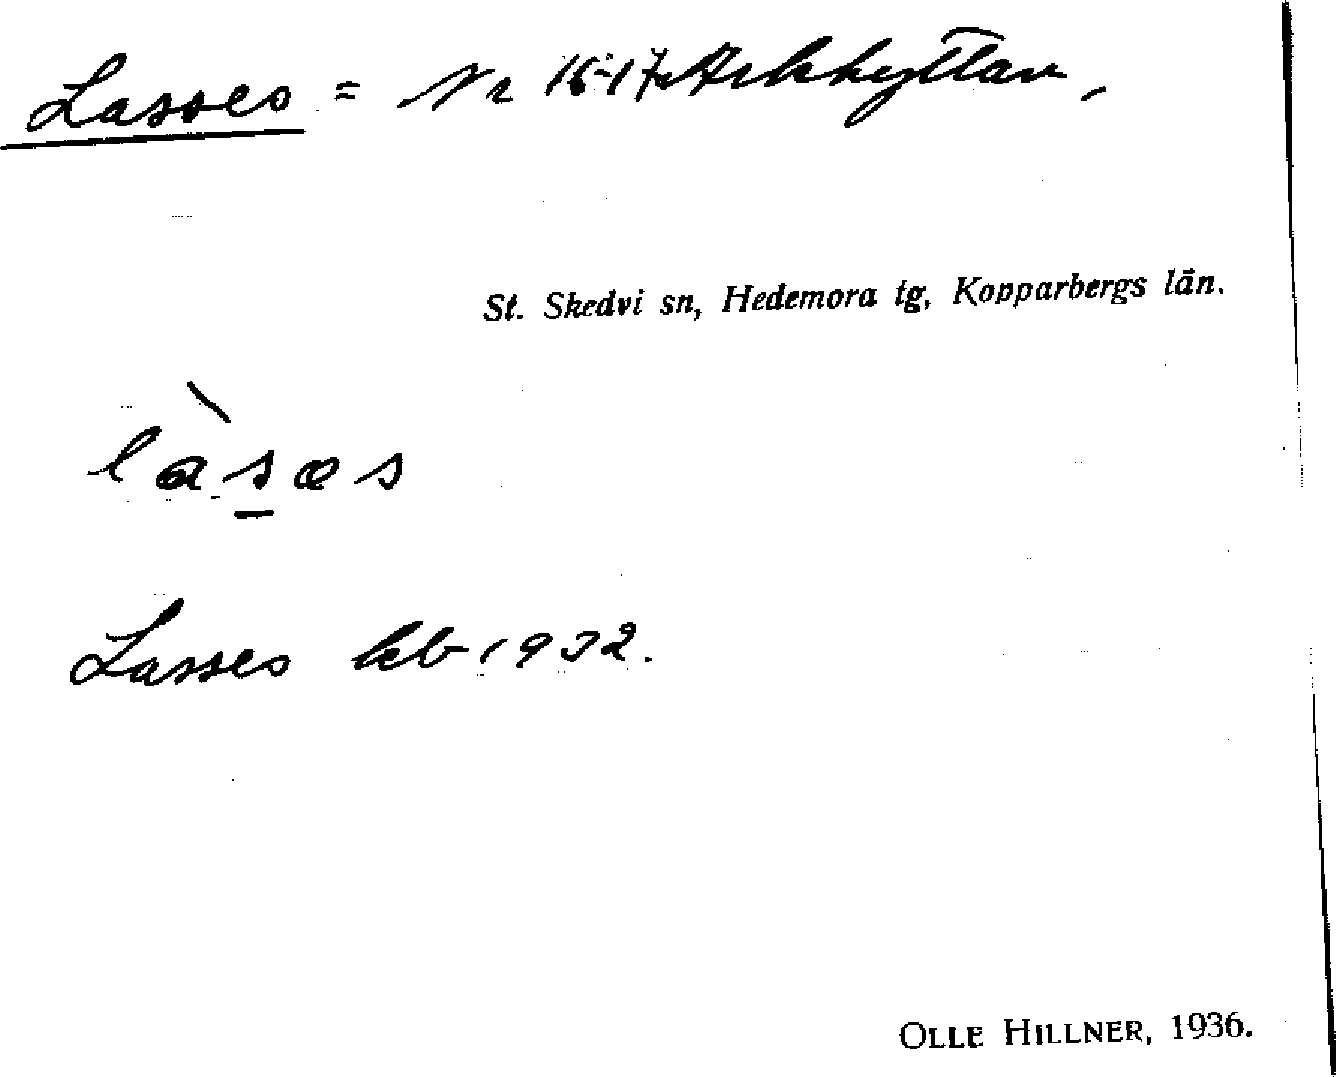 Lasses = Nr 16-17 Arkhyttan,
St. Skedvi sn, Hedemora tg, Kopparbergs län.
làsæs
Lasses kb 1932.
OLLE HILLNER, 1936.